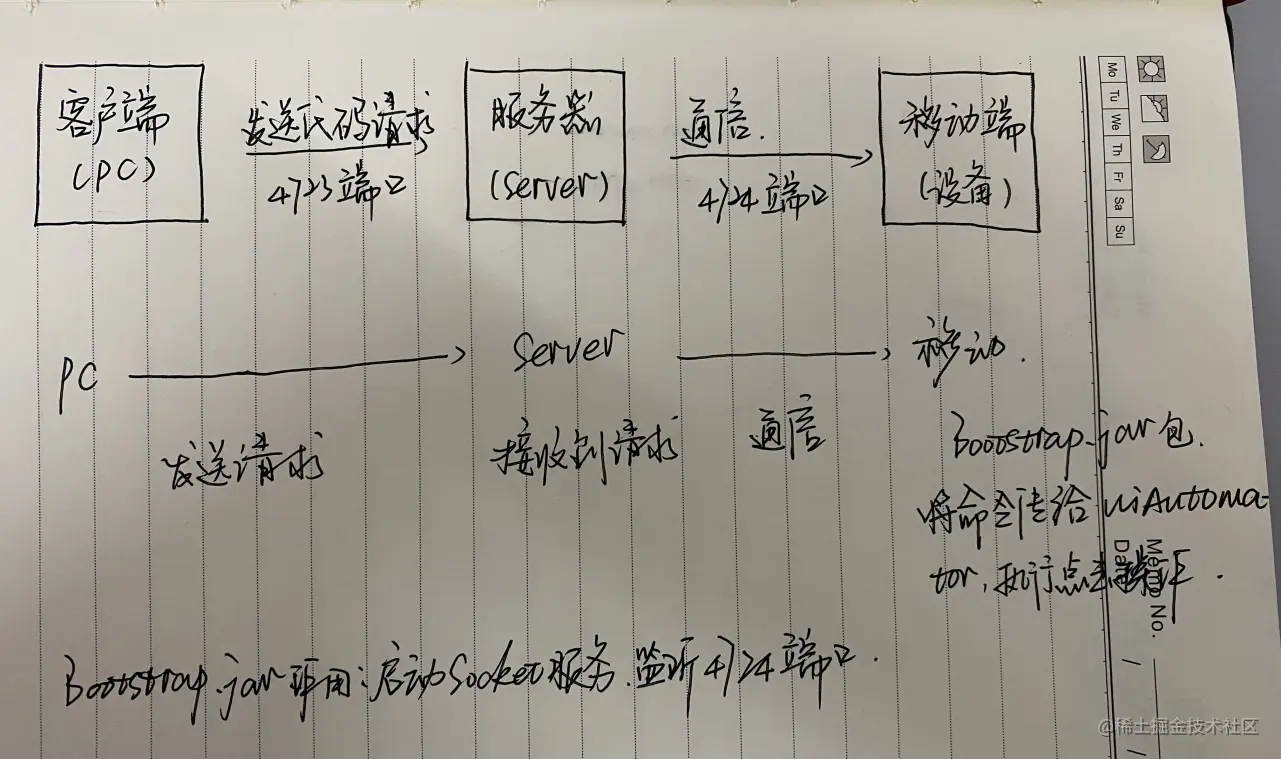 客户端
(PC)
发送代码请求
4723端口
服务器
(Server)
通信.
4724端口
移动端
(设备)
Mo Tu We Th Fr Sa Su
PC
Server
移动.
发送请求
接收到请求
通信
Bootstrap.jar包.
将命令传给uiAutoma-
tor,执行点击操作.
Memo No.
Date
Bootstrap.jar作用:启动Socket服务.监听4724端口.
@稀土掘金技术社区